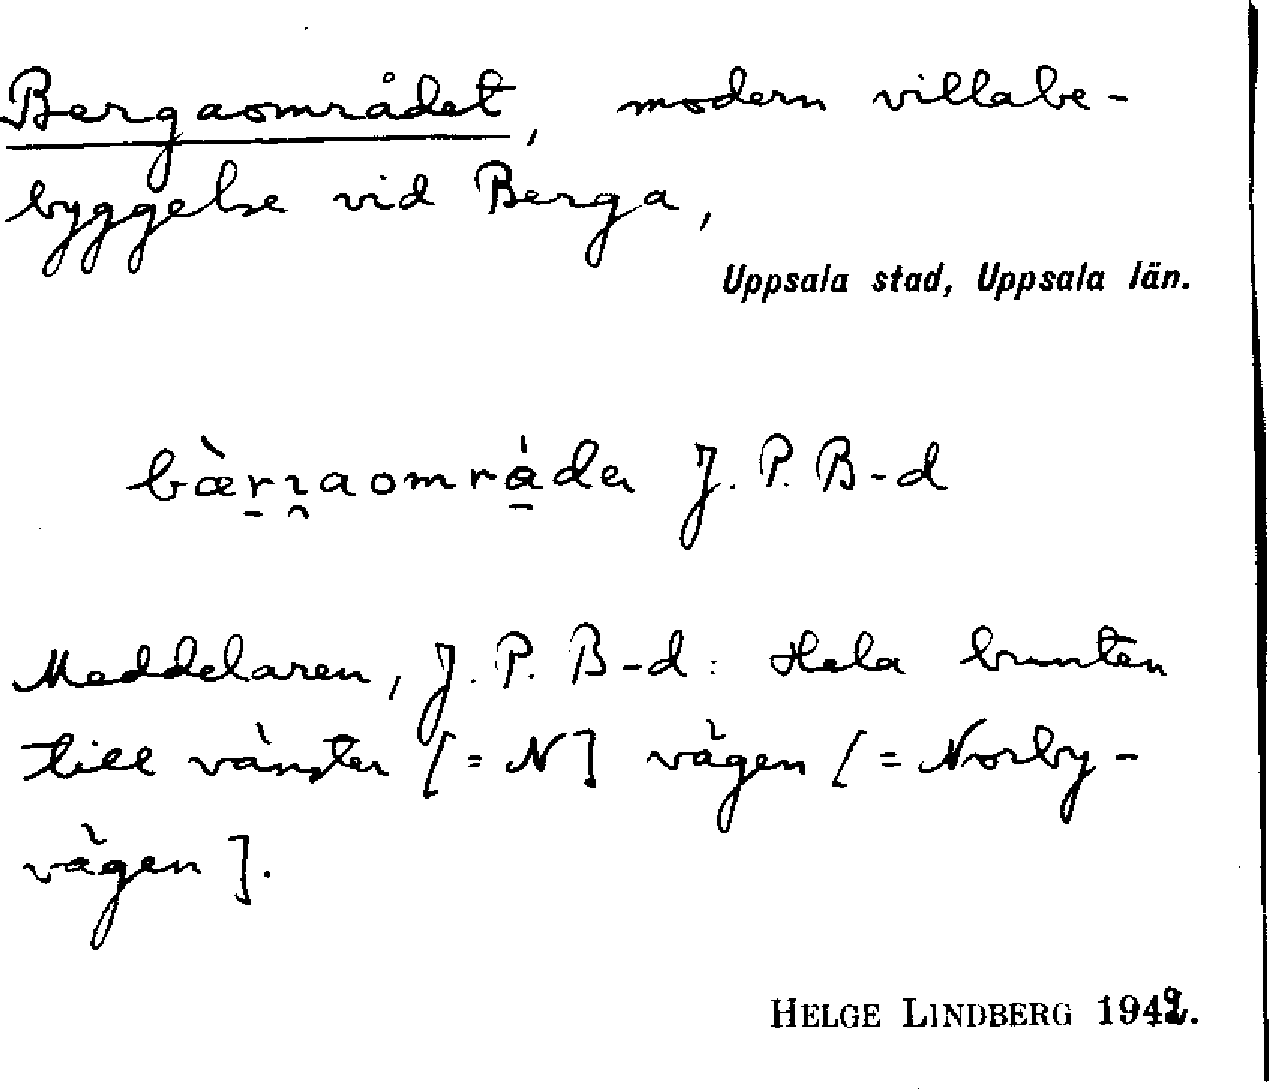 Bergaområdet, modern villabe-
byggelse vid Berga,
Uppsala stad, Uppsala län.
bæ̀r̠ɿ̯aomrǻ̠den J. P. B-d
Meddelaren, J. P. B-d: Hela bunten
till vänster [= N] vägen [= Norby-
vägen].
HELGE LINDBERG 1942.